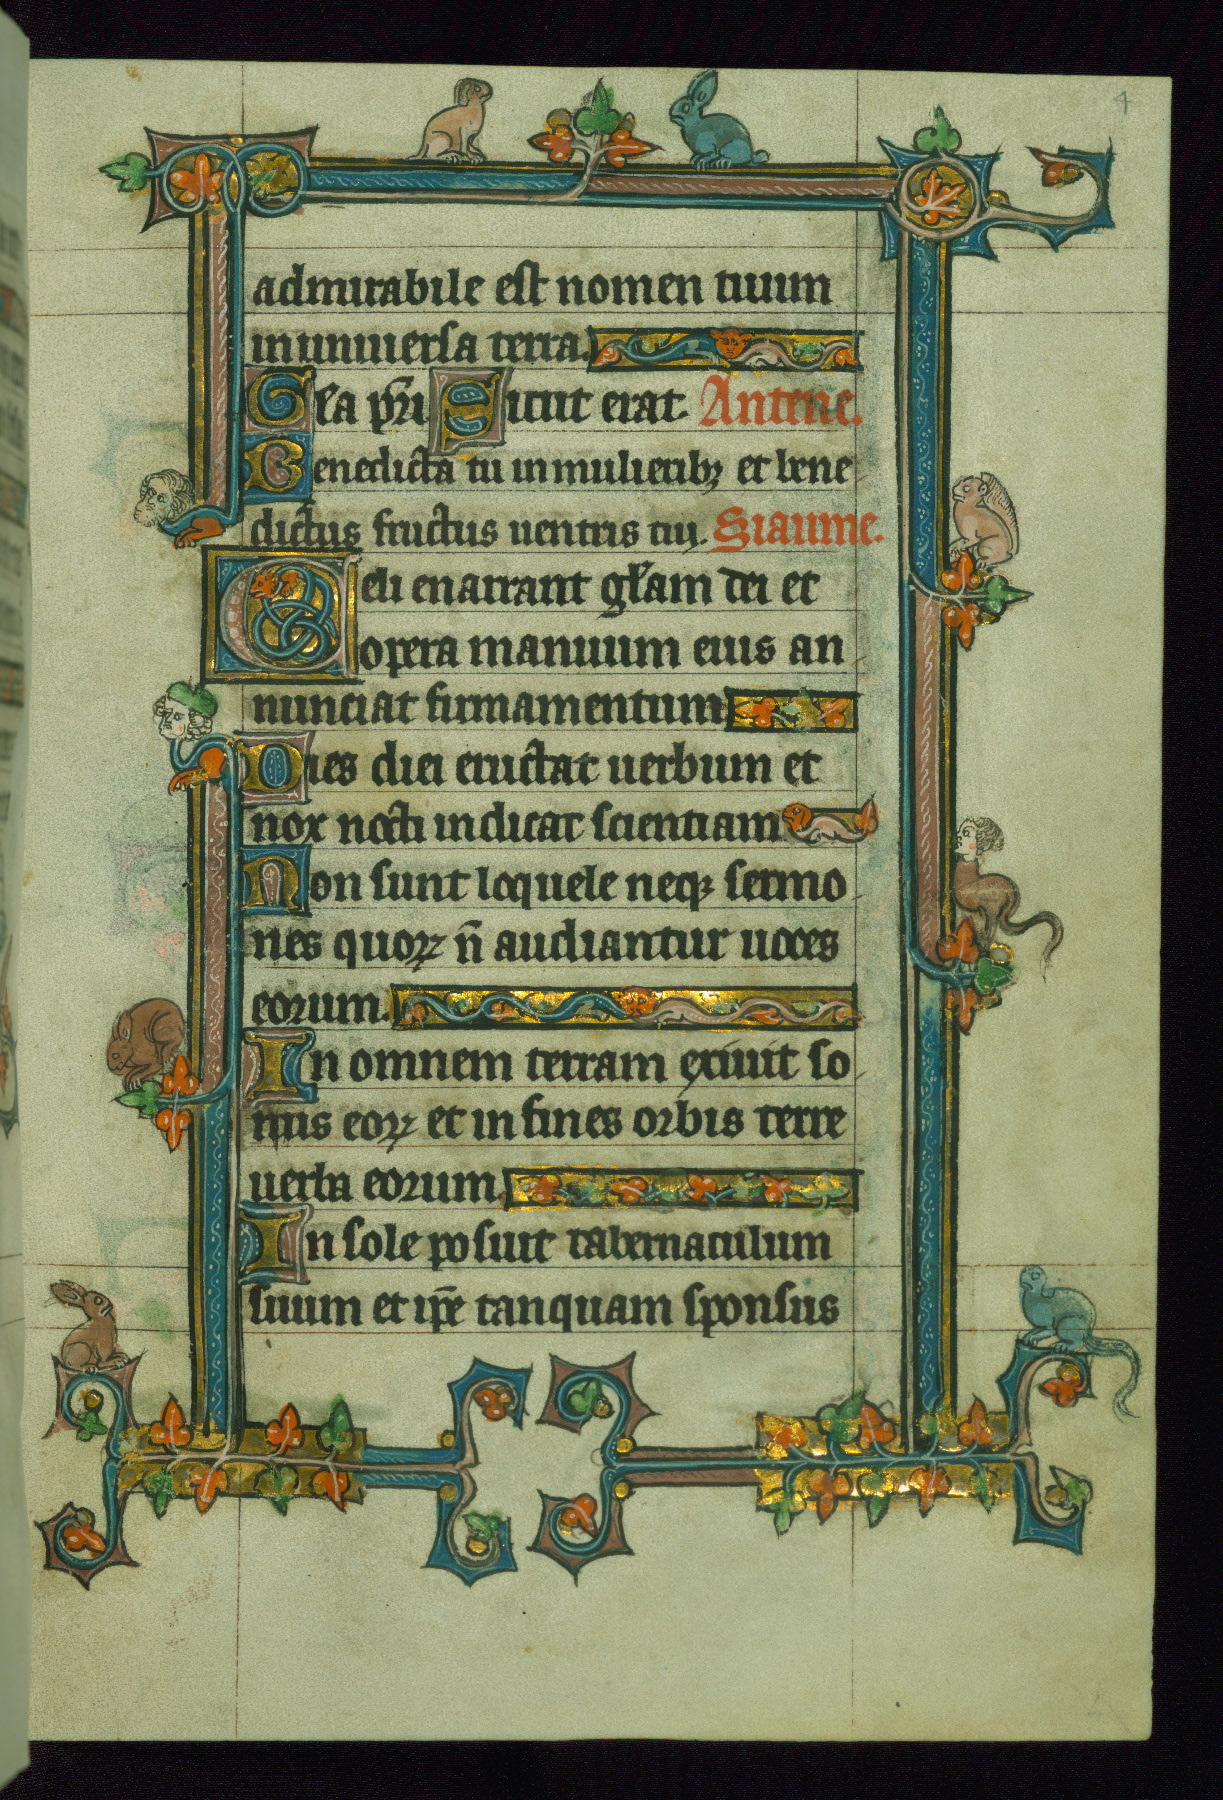 4
admirabile est nomen tuum
in uniuersa terra.
Gl'a pr̄i Sicut erat. Antene.
Benedicta tu in mulieribꝫ et bene
dictus fructus uentris tui. Siaume.
Celi enarrant gl'am dei et
opera manuum eius an
nunciat firmamentum
Dies diei eructat uerbum et
nox nocti indicat scientiam
Non sunt loquele neqꝫ sermo
nes quoꝝ n̄ audiantur uoces
eorum.
In omnem terram exiuit so
nus eoꝝ et in fines orbis terre
uerba eorum.
In sole posuit tabernaculum
suum et ip̄e tanquam sponsus